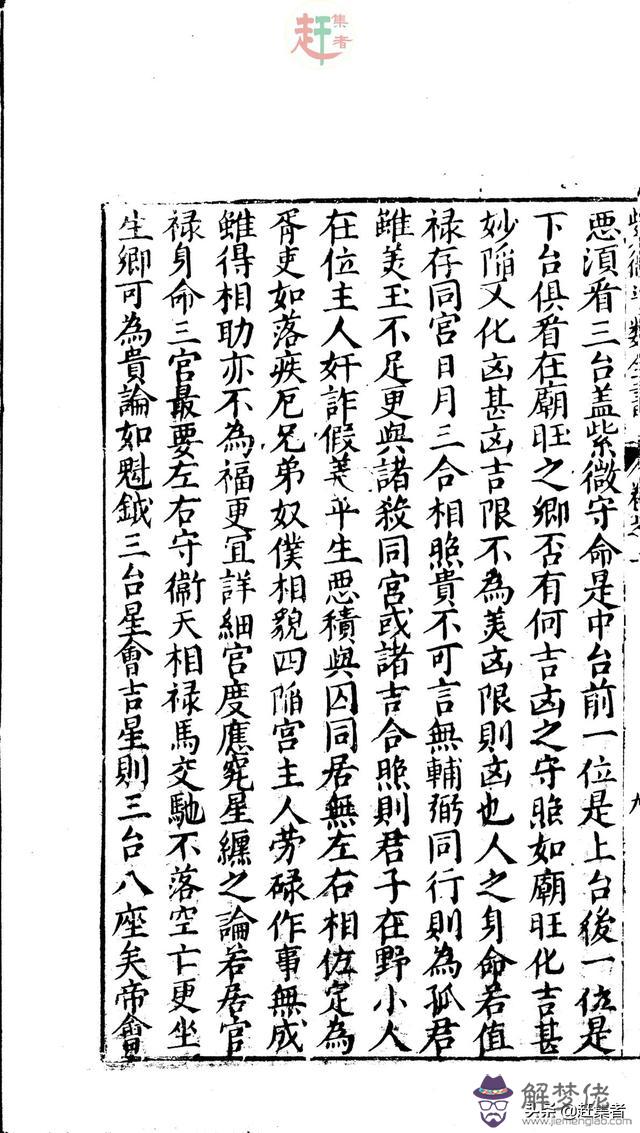 赶集者
悪湏看三台盖紫微守命是中台前一位是上台後一位是
下台俱看在廟旺之鄉否有何吉凶之守照如廟旺化吉甚
妙陥又化凶甚凶吉限不為美凶限則凶也人之身命若值
禄存同宮日月三合相照貴不可言無輔弼同行則為孤君
雖美玉不足更與諸殺同宮或諸吉合照則君子在野小人
在位主人奸詐假善平生悪積與囚同居無左右相佐定為
胥吏如落疾厄兄弟奴僕相貌四陥宮主人劳碌作事無成
雖得相助亦不為福更宜詳細宮度應究星纏之論若居官
禄身命三宮最要左右守衞天相禄馬交馳不落空亡更坐
生鄉可為貴論如魁鉞三台星會吉星則三台八座矣帝會
解梦佬
www.jiemenglao.com
头条@赶集者